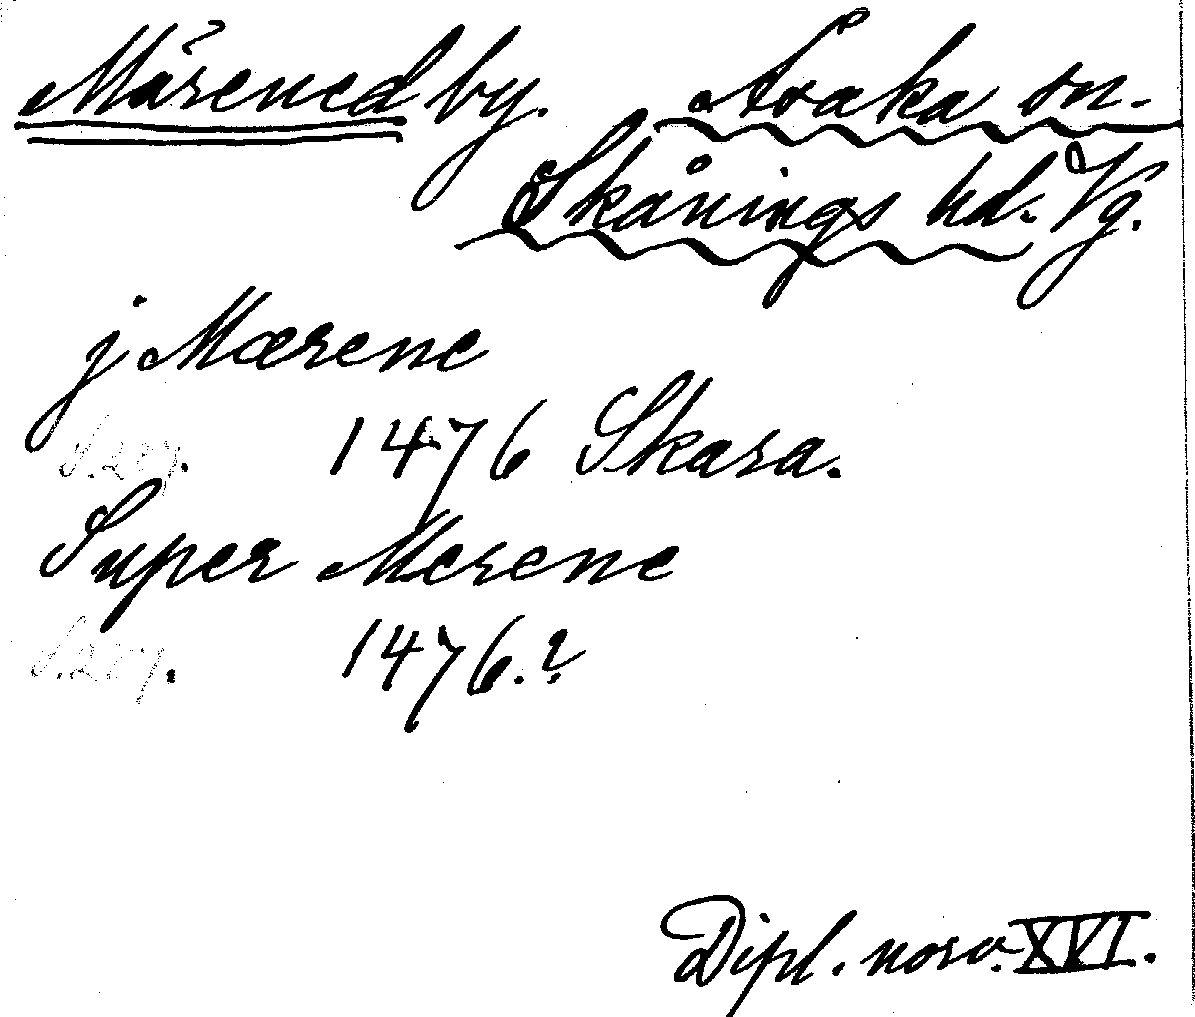 Märened by. Åsaka sn.
Skånings hd. Vg.
j Mærene
S. 207. 1476 Skara.
Super Merene
S. 207. 1476.?
Dipl. norv. XVI.